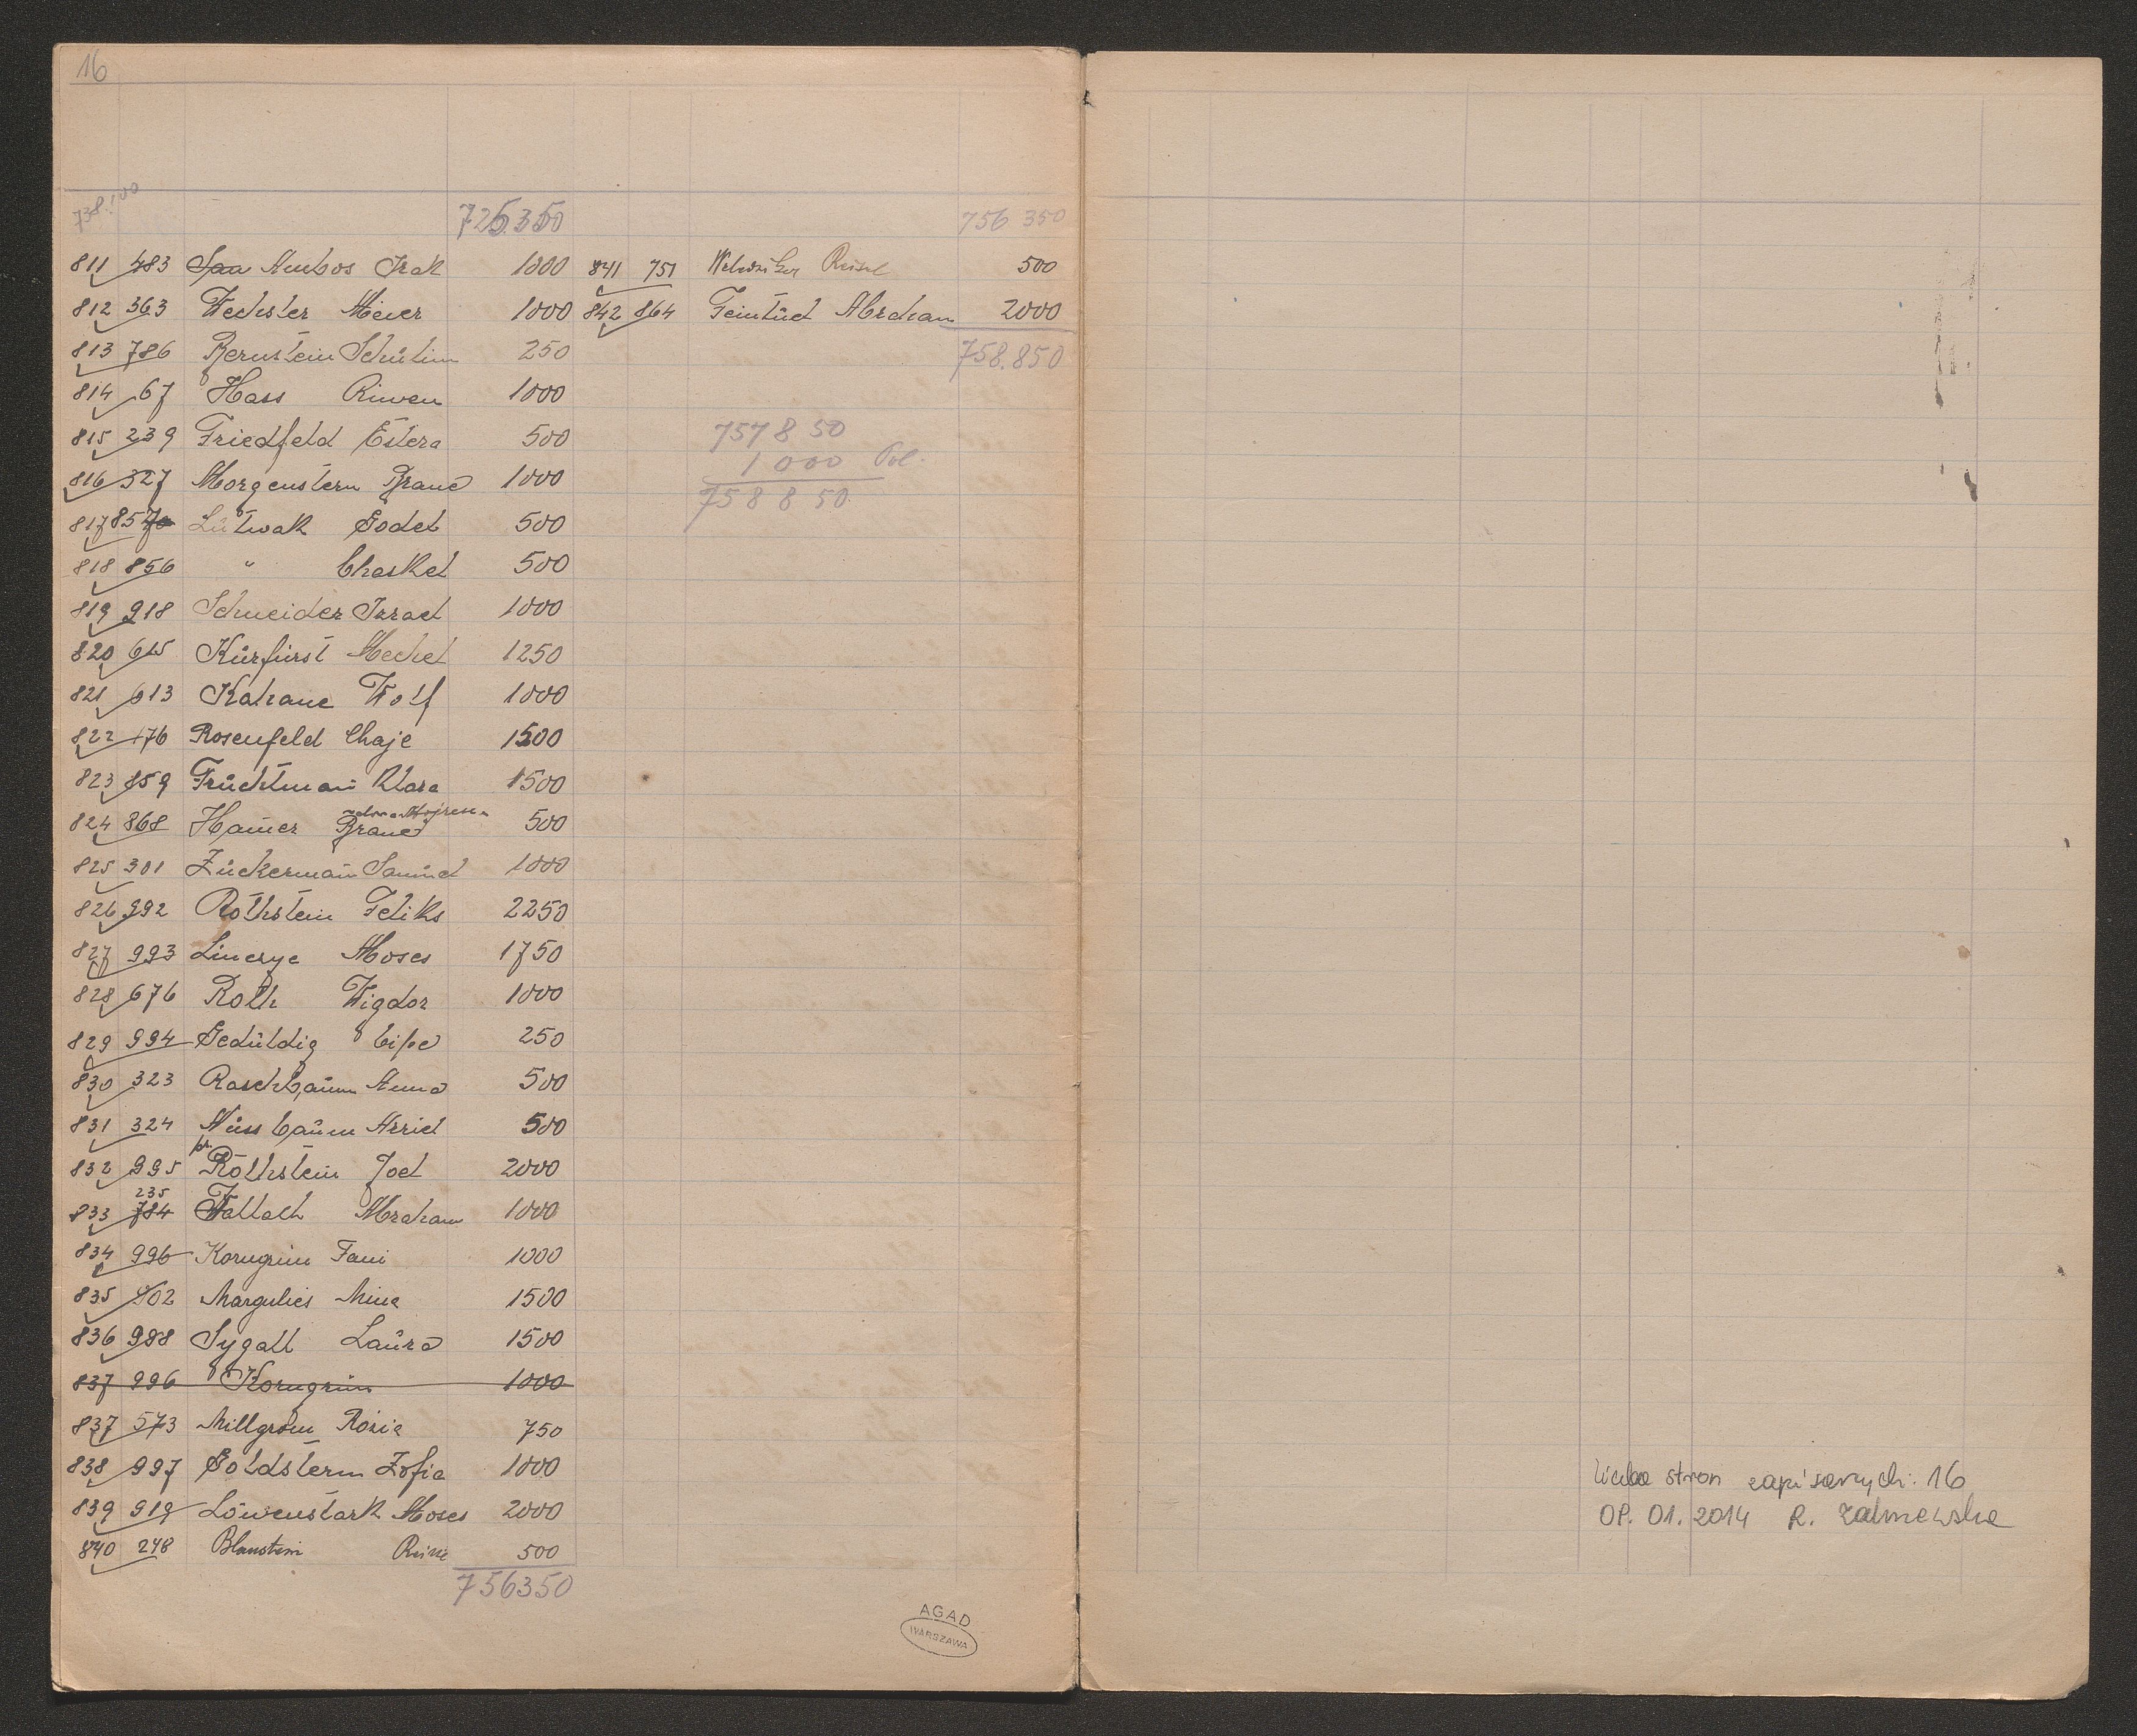 16
738.100
725.350
811 483 Ambos Izak 1000
812 363 Wechsler Meier 1000
813 786 Bernstein Schulim 250
814 67 Hass Riwen 1000
815 239 Friedfeld Estera 500
816 327 Morgenstern Brane 1000
817 857 Lütwak Godel 500
818 856 " Chaskel 500
819 918 Schneider Israel 1000
820 615 Kürfürst Mechel 1250
821 613 Kahane Wolf 1000
822 176 Rosenfeld Chaje 1500
823 859 Früchtman Klara 1500
824 868 Hamer Brane 500
825 301 Zückerman Samuel 1000
826 992 Rothstein Feliks 2250
827 993 Linerye Moses 1750
828 676 Roth Wigdor 1000
829 994 Gedüldig Cipe 250
830 323 Raschbaüm Anna 500
831 324 Nüssbaüm Arriel 500
832 995 pr. Rothstein Joel 2000
235
833 784 Wallach Abraham 1000
834 996 Korngrün Fani 1000
835 402 Margulies Mina 1500
836 988 Sygall Laüra 1500
837 996 Korngrün 1000
837 573 Millgrom Rozia 750
838 997 Goldstern Zofia 1000
839 919 Löwenstark Moses 2000
840 248 Blaustein Reise 500
756350
756 350
841 751 Reisel 500
842 864 Feintüch Abraham 2000
758.850
757 8 50
1 000 Pol.
758 8 50
AGAD
WARSZAWA
liczba stron zapisanych: 16
08. 01. 2014 R. Zalmewska